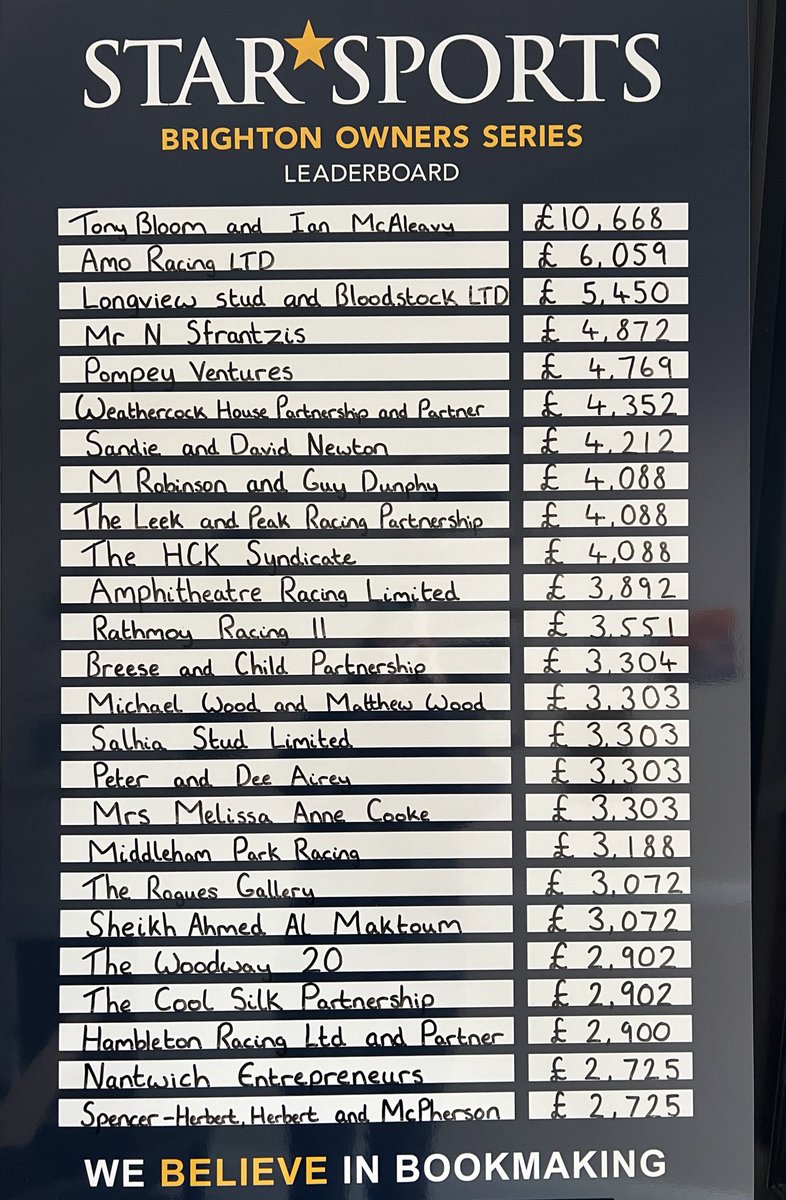 STAR★SPORTS
BRIGHTON OWNERS SERIES
LEADERBOARD
Tony Bloom and Ian McAleavy £10,668
Amo Racing LTD £ 6,059
Longview stud and Bloodstock LTD £ 5,450
Mr N Sfrantzis £ 4,872
Pompey Ventures £ 4,769
Weathercock House Partnership and Partner £ 4,352
Sandie and David Newton £ 4,212
M Robinson and Guy Dunphy £ 4,088
The Leek and Peak Racing Partnership £ 4,088
The HCK Syndicate £ 4,088
Amphitheatre Racing Limited £ 3,892
Rathmoy Racing II £ 3,551
Breese and Child Partnership £ 3,304
Michael Wood and Matthew Wood £ 3,303
Salhia Stud Limited £ 3,303
Peter and Dee Airey £ 3,303
Mrs Melissa Anne Cooke £ 3,303
Middleham Park Racing £ 3,188
The Rogues Gallery £ 3,072
Sheikh Ahmed Al Maktoum £ 3,072
The Woodway 20 £ 2,902
The Cool Silk Partnership £ 2,902
Hambleton Racing Ltd and Partner £ 2,900
Nantwich Entrepreneurs £ 2,725
Spencer-Herbert, Herbert and McPherson £ 2,725
WE BELIEVE IN BOOKMAKING